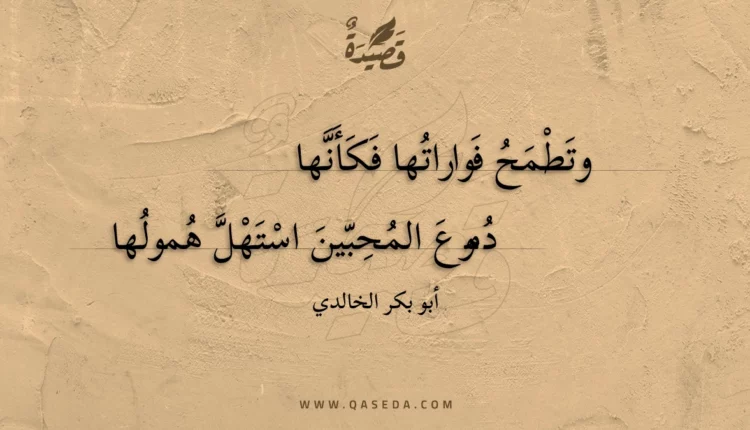 قَصِيْدَةٌ
وتَطْمَحُ فَواراتُها فَكَأَنَّها
دُموعَ المُحِبّينَ اسْتَهْلَّ هُمولُها
أبو بكر الخالدي
WWW.QASEDA.COM